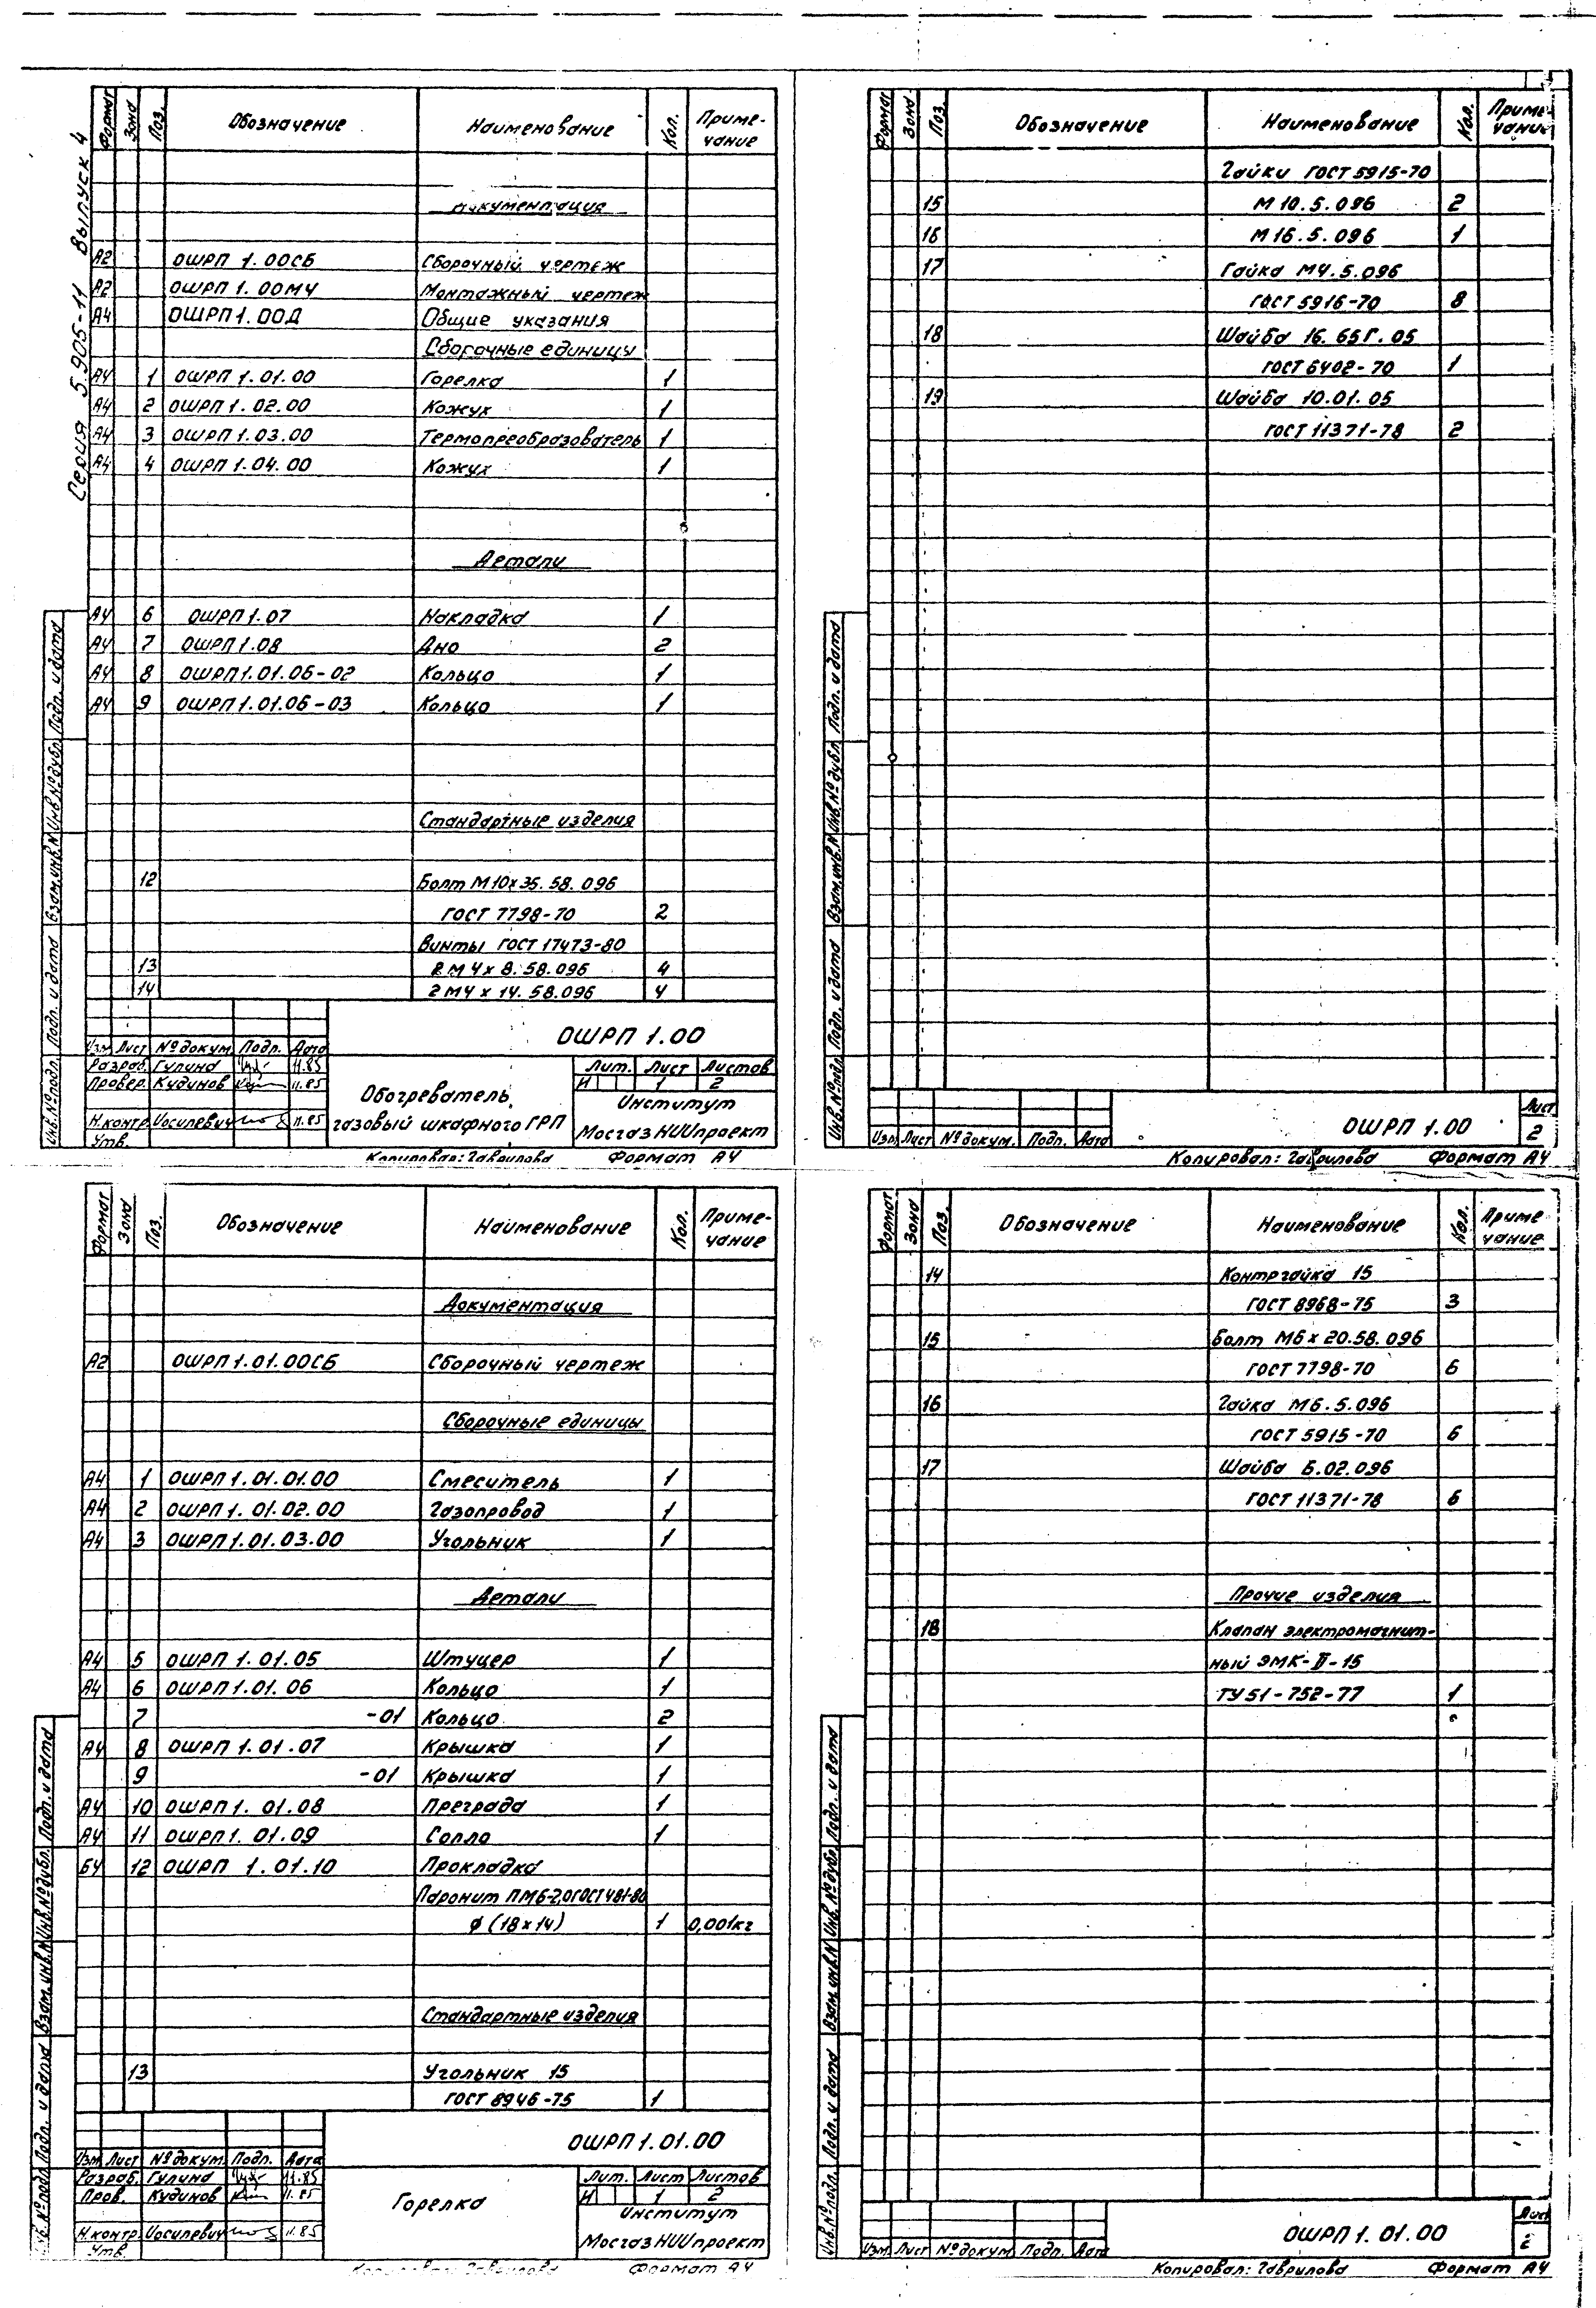 Серия 5.905-11 Выпуск 4
Формат Зона Поз. Обозначение Наименование Кол. Приме-
чание
Документация
А2 ОШРП 1.00СБ Сборочный чертеж
А2 ОШРП 1.00МЧ Монтажный чертеж
А4 ОШРП 1.00Д Общие указания
Сборочные единицы
А4 1 ОШРП 1.01.00 Горелка 1
А4 2 ОШРП 1.02.00 Кожух 1
А4 3 ОШРП 1.03.00 Термопреобразователь 1
А4 4 ОШРП 1.04.00 Кожух 1
Детали
А4 6 ОШРП 1.07 Накладка 1
А4 7 ОШРП 1.08 Дно 2
А4 8 ОШРП 1.01.06-02 Кольцо 1
А4 9 ОШРП 1.01.06-03 Кольцо 1
Стандартные изделия
12 Болт М10х35.58.096
ГОСТ 7798-70 2
Винты ГОСТ 17473-80
13 2М4х8.58.096 4
14 2М4х14.58.096 4
ОШРП 1.00
Изм. Лист № докум. Подп. Дата
Разраб. Гулина 11.85
Провер. Кудинов 11.85
Н.контр. Иосилевич 11.85
Утв.
Обогреватель
газовый шкафного ГРП
Лит. Лист Листов
И 1 2
Институт
МосгазНИИпроект
Копировал: Гаврилова Формат А4
Инв.№ подл. Подп. и дата Взам.инв.№ Инв.№ дубл. Подп. и дата
Формат Зона Поз. Обозначение Наименование Кол. Приме-
чание
Гайки ГОСТ 5915-70
15 М10.5.096 2
16 М16.5.096 1
17 Гайка М4.5.096
ГОСТ 5916-70 8
18 Шайба 16.65Г.05
ГОСТ 6402-70 1
19 Шайба 10.01.05
ГОСТ 11371-78 2
Инв.№ подл. Подп. и дата Взам.инв.№ Инв.№ дубл. Подп. и дата
Изм. Лист № докум. Подп. Дата
ОШРП 1.00
Лист
2
Копировал: Гаврилова Формат А4
Формат Зона Поз. Обозначение Наименование Кол. Приме-
чание
Документация
А2 ОШРП 1.01.00СБ Сборочный чертеж
Сборочные единицы
А4 1 ОШРП 1.01.01.00 Смеситель 1
А4 2 ОШРП 1.01.02.00 Газопровод 1
А4 3 ОШРП 1.01.03.00 Угольник 1
Детали
А4 5 ОШРП 1.01.05 Штуцер 1
А4 6 ОШРП 1.01.06 Кольцо 1
7 -01 Кольцо 2
А4 8 ОШРП 1.01.07 Крышка 1
9 -01 Крышка 1
А4 10 ОШРП 1.01.08 Преграда 1
А4 11 ОШРП 1.01.09 Сопло 1
БЧ 12 ОШРП 1.01.10 Прокладка
Паронит ПМБ-2,0 ГОСТ 481-80
ф (18х14) 1 0,001кг
Стандартные изделия
13 Угольник 15
ГОСТ 8946-75 1
ОШРП 1.01.00
Изм. Лист № докум. Подп. Дата
Разраб. Гулина 11.85
Пров. Кудинов 11.85
Н.контр. Иосилевич 11.85
Утв.
Горелка
Лит. Лист Листов
И 1 2
Институт
МосгазНИИпроект
Копировал: Гаврилова Формат А4
Инв.№ подл. Подп. и дата Взам.инв.№ Инв.№ дубл. Подп. и дата
Формат Зона Поз. Обозначение Наименование Кол. Приме-
чание
14 Контргайка 15
ГОСТ 8968-75 3
15 Болт М6х20.58.096
ГОСТ 7798-70 6
16 Гайка М6.5.096
ГОСТ 5915-70 6
17 Шайба 6.02.096
ГОСТ 11371-78 6
Прочие изделия
18 Клапан электромагнит-
ный ЭМК-II-15
ТУ 51-752-77 1
Инв.№ подл. Подп. и дата Взам.инв.№ Инв.№ дубл. Подп. и дата
Изм. Лист № докум. Подп. Дата
ОШРП 1.01.00
Лист
2
Копировал: Гаврилова Формат А4